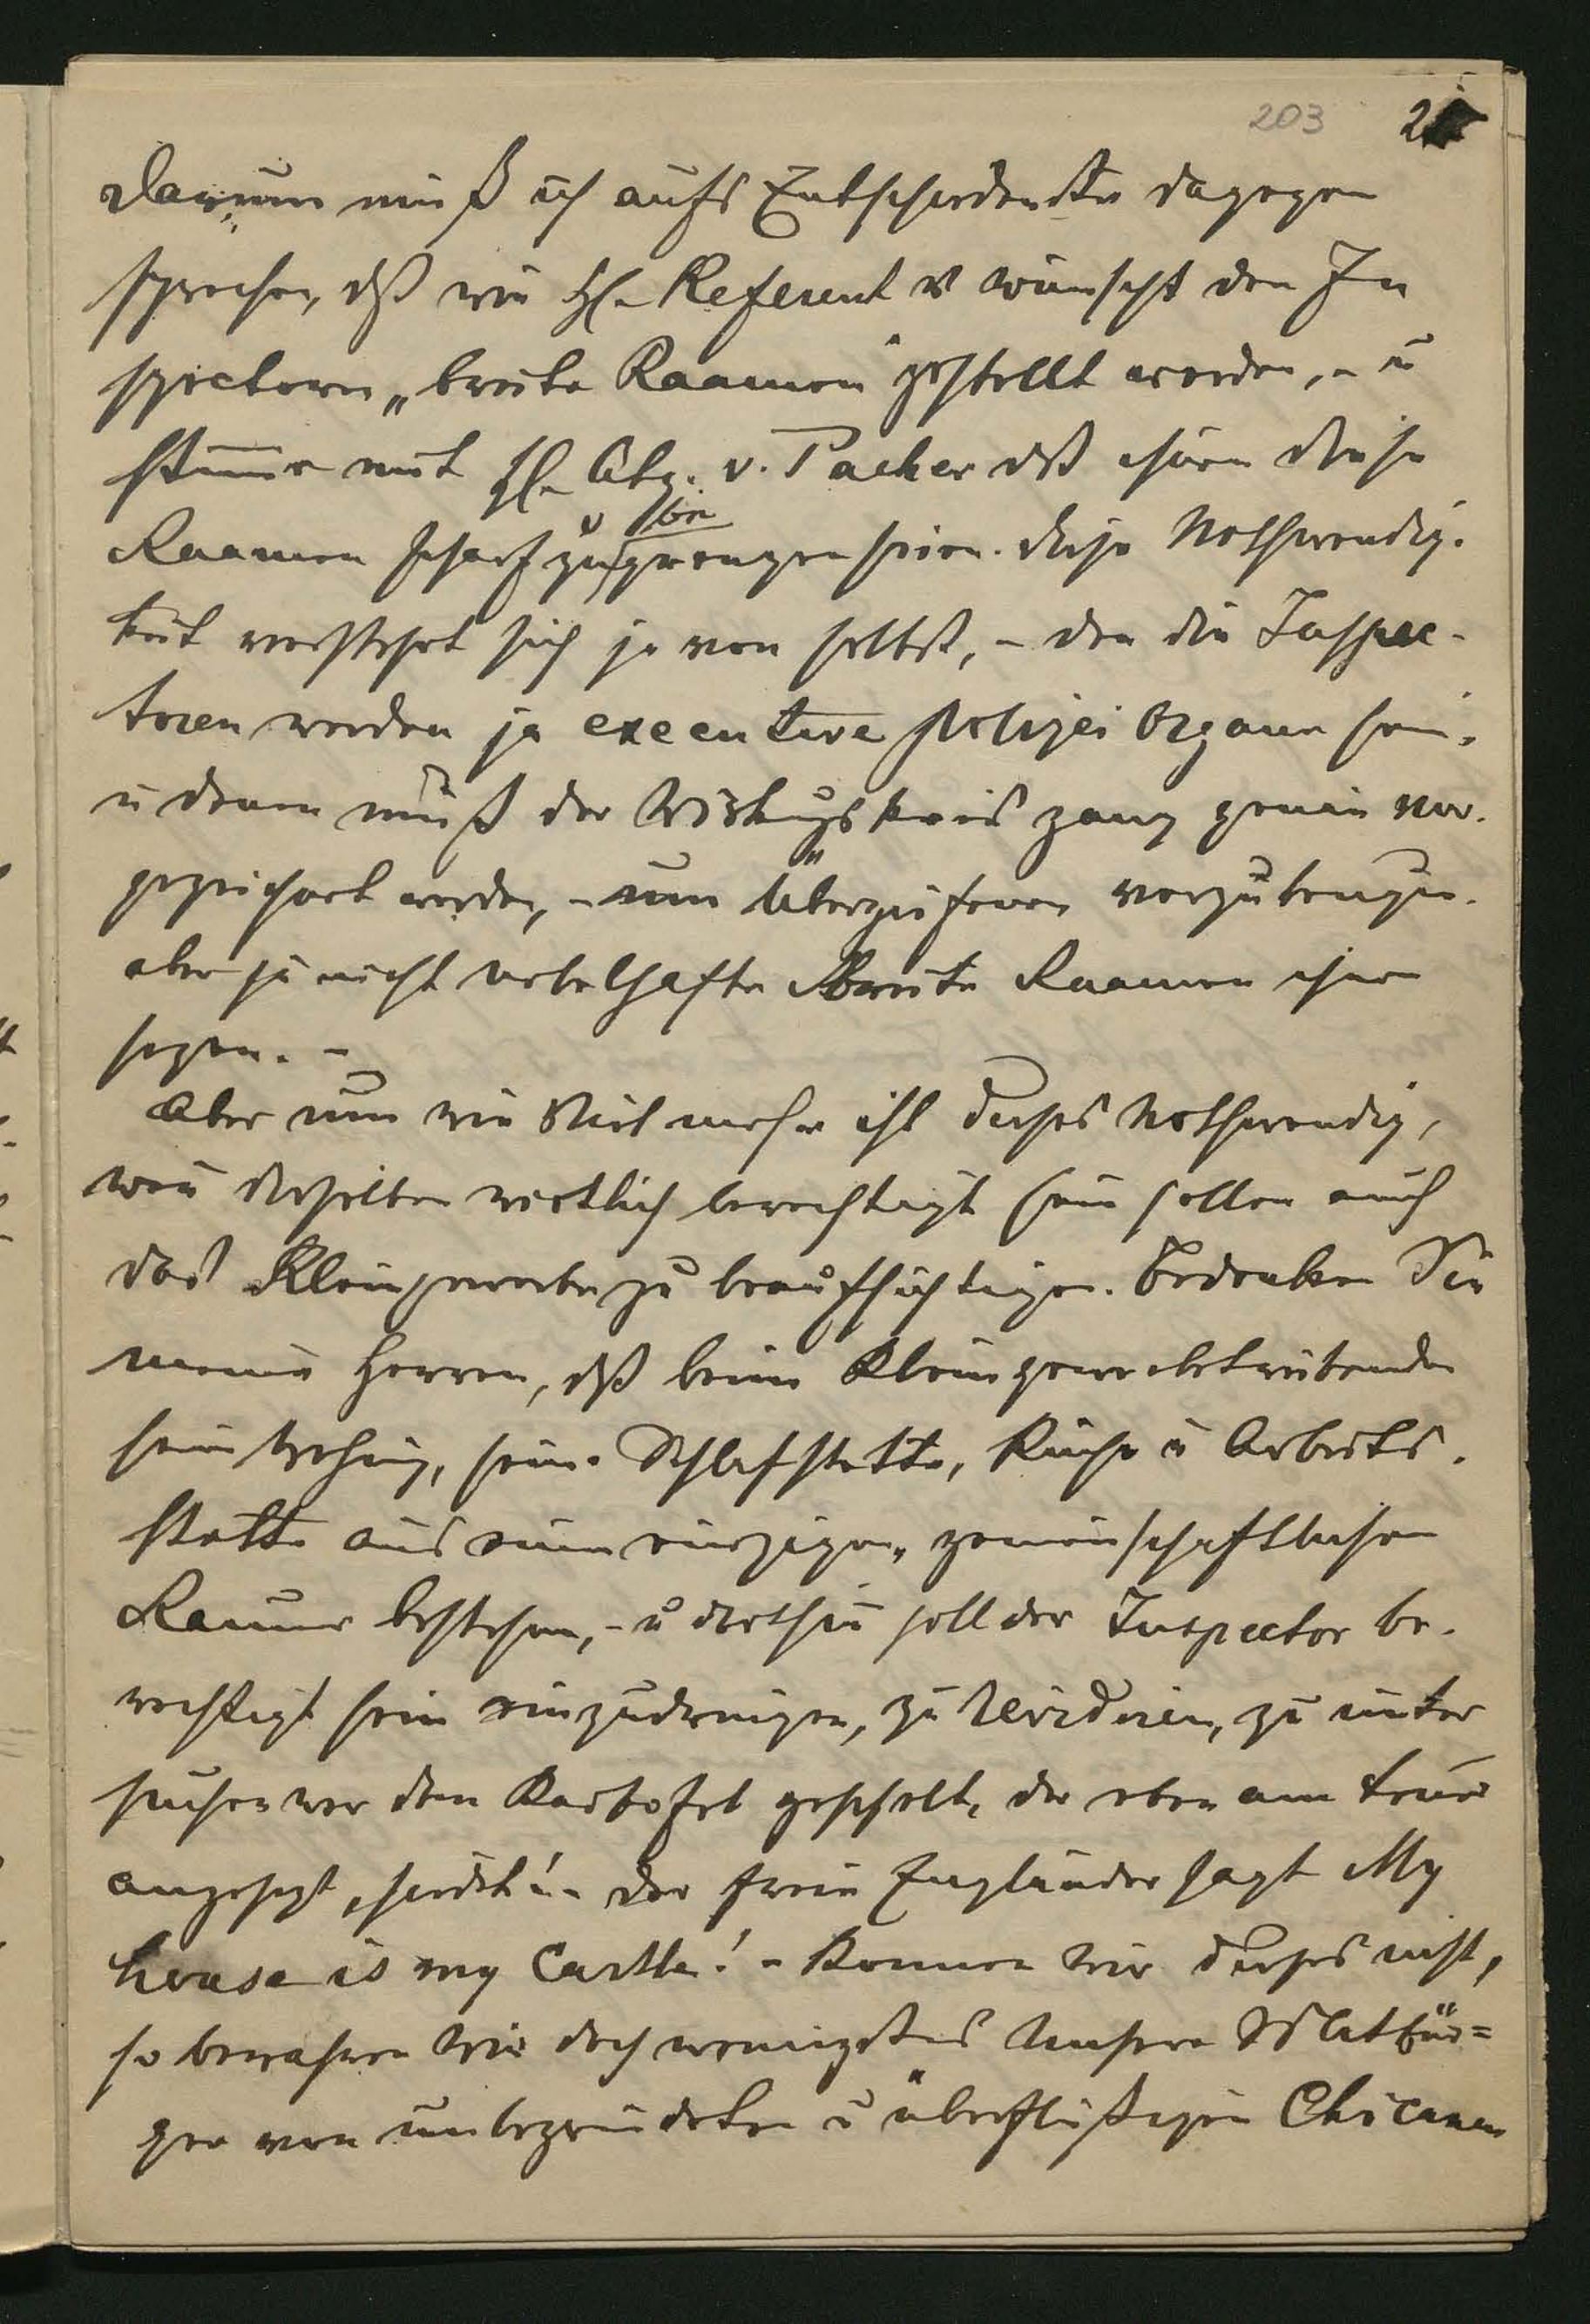 203 2
Darum muß ich aufs Entschiedenste dagegen
sprechen, dß wie H. Referent es wünscht den In
spectoren „breite Raamen" gestellt werden, - u
stimme mit H. Abg. v. Pacher dß ihnen diese
Raamen scharf zu begrenzen seien. diese Nothwendig-
keit versteht sich ja von selbst, - den die Inspec-
toren werden ja executive polizei Organe sein,
u denen muß der Wirkungskreis ganz genau vor-
gezeichnet werden, - um Übergriffen vorzubeugen.
aber ja nicht nebelhafte breite Raamen ihnen
setzen. -
Aber um wie Viel mehr ist dieses Nothwendig,
wen dieselben wirklich berechtigt sein sollen auch
das Kleingewerbe zu beaufsichtigen. Bedenken Sie
meine Herren, dß beim Kleingewerbetreibenden
sein Wohnung, seine Schlafstatte, Küche u Arbeits-
statte aus einem einzigen gemeinschaftlichen
Raume bestehen, - u dorthin soll der Inspector be-
rechtigt sein einzudringen, zu revidiren, zu unter
suchen wer den Kartofel geschelt, der eben am feuer
angesezt, siedet! - Der freie Engländer sagt My
house is my Castle! - Konnen wir dieses nicht,
so bewahren wir doch wenigstens Unsere Mitbür=
ger von unbegründeten u überflüßigen Chicanen